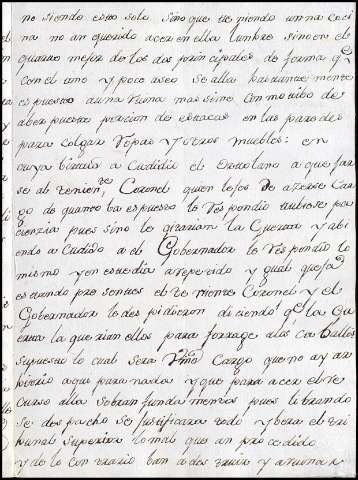 no siendo esto solo sino que teniendo unna coci
na no an querido acer en ella lumbre sino en el
quarto mejor de los dos prinzipales de forma q.e
con el umo y poco aseo se alla bastante mente
espuesto a una Ruina mas sino con motibo de
aber puesto porcion de estacas en las paredes
para colgar Ropas y otros muebles: en
cuya birtud a cudidio el Ortolano a quejar
se al teniente Coronel quien lejos de azerse Car
go de quanto ba espuesto le Respondio tubiese pa
cienzia pues sino le girarian la Guerra y abi
endo a Cudido a el Gobernador le Respondio lo
mismo y en este dia a repetido ygual queja
estando pre sentes el te niente Coronel y el
Gobernador le des pidieron diciendo q.e la Gu
erta la querian ellos para forrage a los caballos
supuesto lo cual sera Vmd Cargo que no ay am
paro aqui para nada y que para acer el re
curso alla sobran fundamentos pues librando
se des pacho se Justificara todo y bera el tri
bunal superior lo mal que an pro cedido
y de lo con trario ban a des truir y aruinar